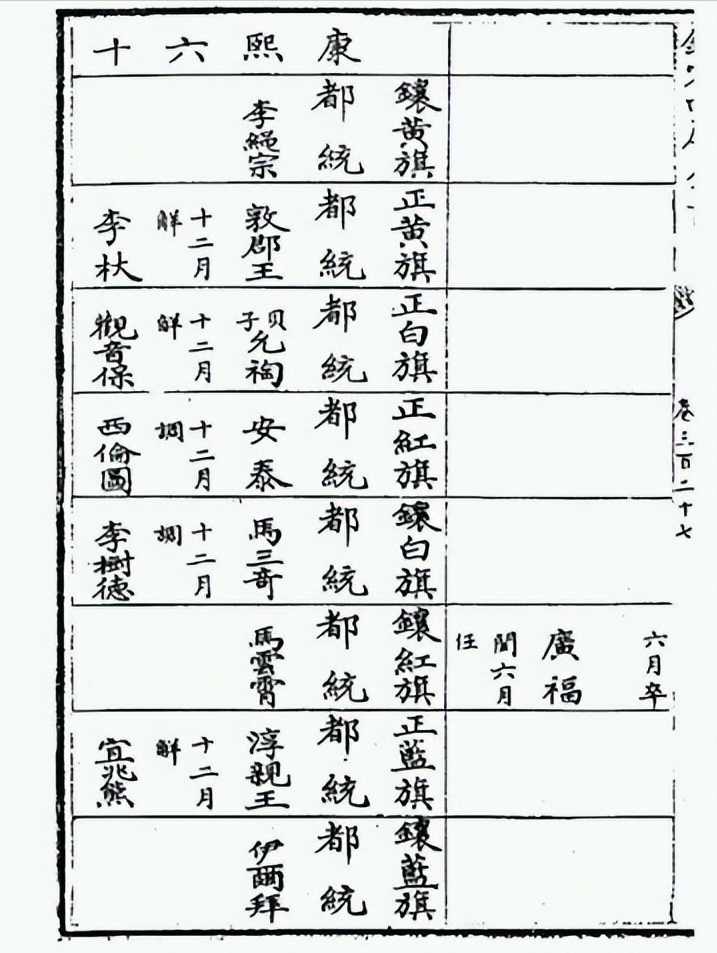 卷三百二十七
六月卒
廣福
閏六月
任
康熙六十
鑲黃旗
都統
李繩宗
正黃旗
都統
敦郡王
十二月
解
李杕
正白旗
都統
貝子允祹
十二月
解
觀音保
正紅旗
都統
安泰
十二月
調
西倫圖
鑲白旗
都統
馬三奇
十二月
調
李樹德
鑲紅旗
都統
馬雲霄
正藍旗
都統
淳親王
十二月
解
宜兆熊
鑲藍旗
都統
伊爾拜